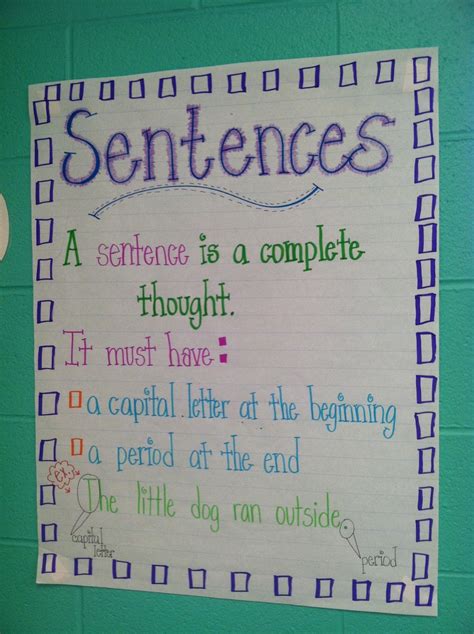 Sentences
A sentence is a complete
thought.
It must have:
a capital letter at the beginning
a period at the end
ex.
The little dog ran outside.
capital
letter
period